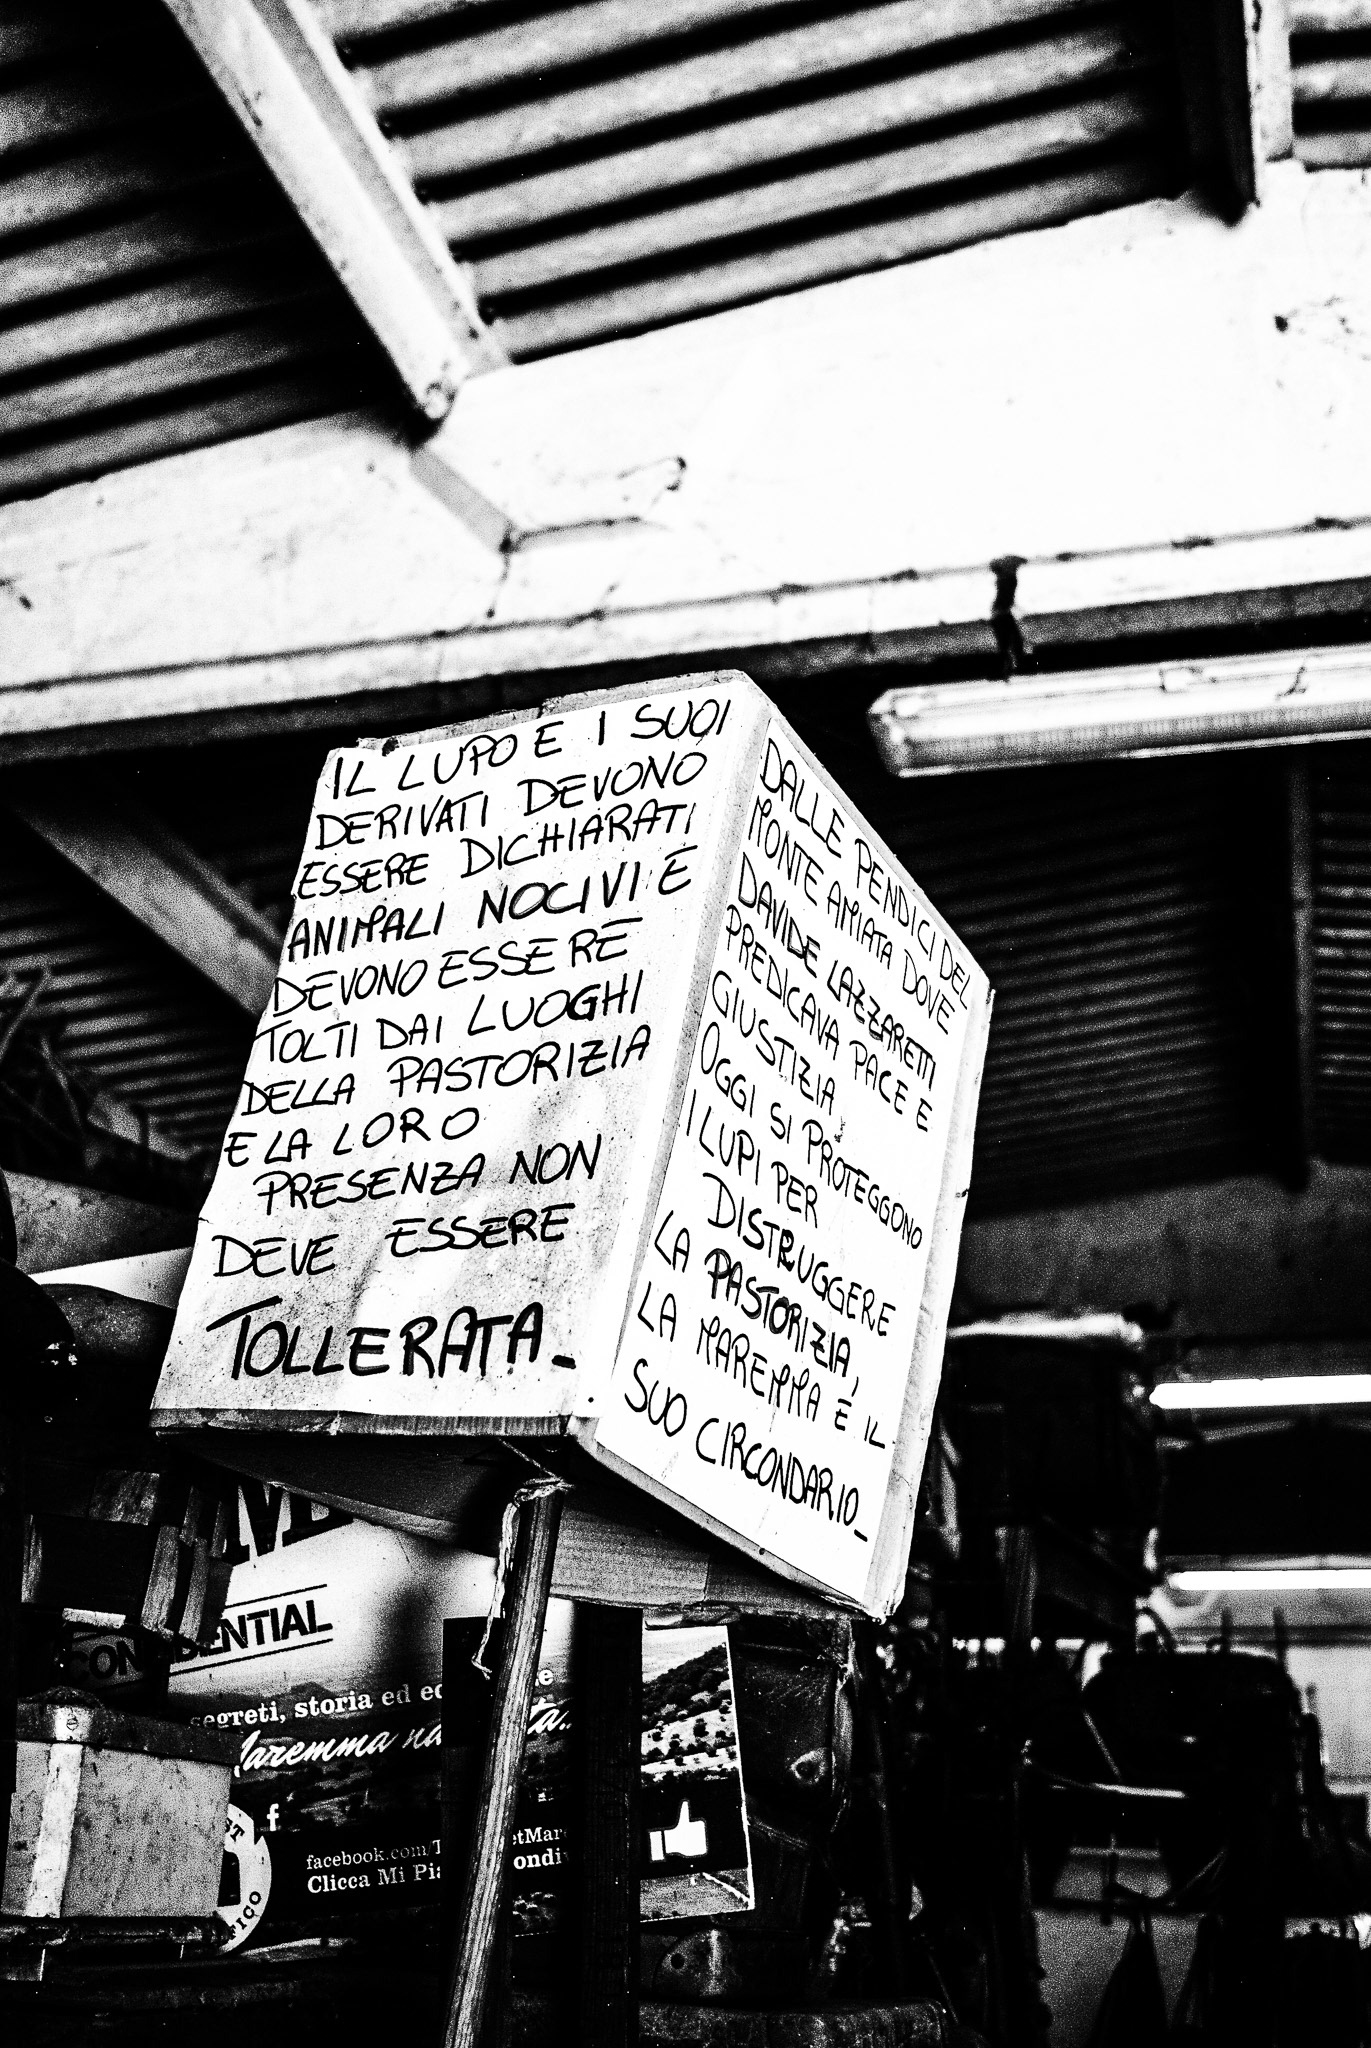 IL LUPO E I SUOI
DERIVATI DEVONO
ESSERE DICHIARATI
ANIMALI NOCIVI E
DEVONO ESSERE
TOLTI DAI LUOGHI
DELLA PASTORIZIA
E LA LORO
PRESENZA NON
DEVE ESSERE
TOLLERATA_
DALLE PENDICI DEL
MONTE AMIATA DOVE
DAVIDE LAZZARETTI
PREDICAVA PACE E
GIUSTIZIA
OGGI SI PROTEGGONO
I LUPI PER
DISTRUGGERE
LA PASTORIZIA,
LA MAREMMA E IL
SUO CIRCONDARIO_
CONFIDENTIAL
segreti, storia ed
Maremma
f
facebook.com/
Clicca Mi